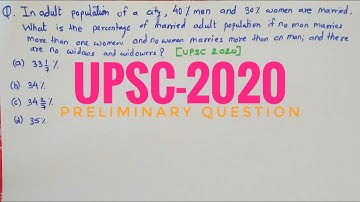 Q. In adult population of a city, 40% men and 30% women are married.
What is the percentage of married adult population if no man marries
more than one women and no women marries more than on man; and there
are no widows and widowers? [UPSC 2020]
(a) 33 1/7 %
(b) 34%
(c) 34 2/7 %
(d) 35%
UPSC-2020
PRELIMINARY QUESTION